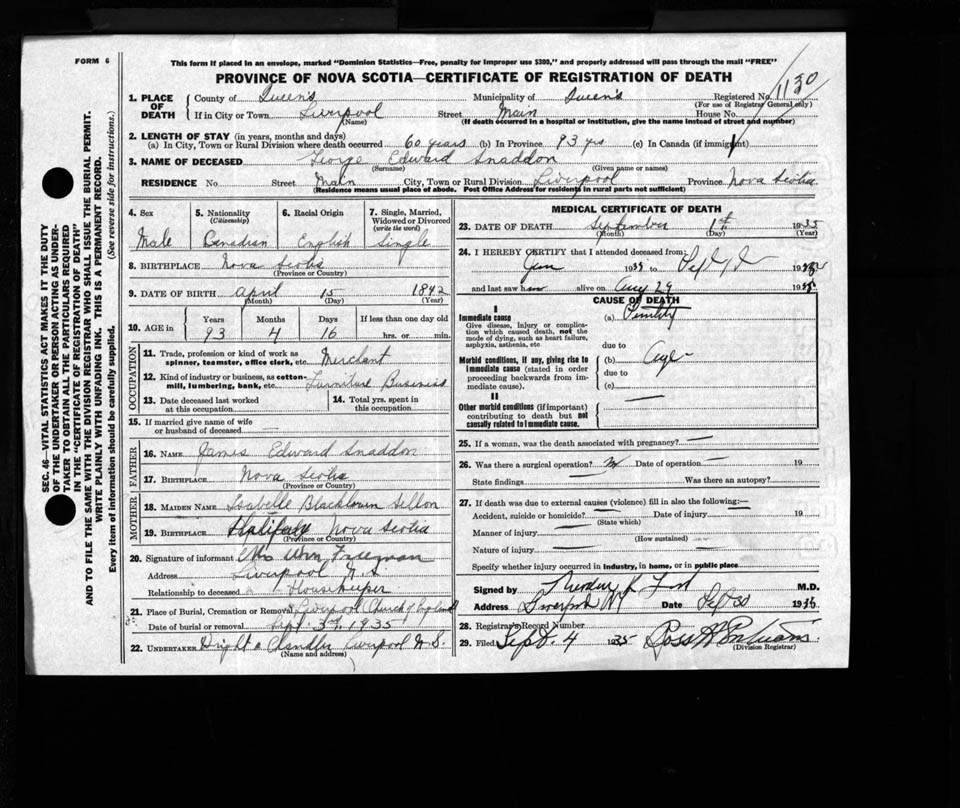 FORM 6
This form if placed in an envelope, marked "Dominion Statistics—Free, penalty for improper use $300," and properly addressed will pass through the mail "FREE"
PROVINCE OF NOVA SCOTIA—CERTIFICATE OF REGISTRATION OF DEATH
1. PLACE OF DEATH County of Queen's Municipality of Queen's Registered No. 1130
(For use of Registrar General only)
If in City or Town Liverpool Street Main House No.
(Name) (If death occurred in a hospital or institution, give the name instead of street and number)
2. LENGTH OF STAY (in years, months and days)
(a) In City, Town or Rural Division where death occurred 60 years (b) In Province 93 yrs (c) In Canada (if immigrant)
3. NAME OF DECEASED George Edward Snaddon
(Surname) (Given name or names)
RESIDENCE No. Street Main City, Town or Rural Division Liverpool Province Nova Scotia
(Residence means usual place of abode. Post Office Address for residents in rural parts not sufficient)
4. Sex 5. Nationality (Citizenship) 6. Racial Origin 7. Single, Married, Widowed or Divorced (write the word)
Male Canadian English Single
8. BIRTHPLACE Nova Scotia
(Province or Country)
9. DATE OF BIRTH April 15 1842
(Month) (Day) (Year)
10. AGE in Years Months Days If less than one day old
93 4 16 hrs. or min.
OCCUPATION
11. Trade, profession or kind of work as spinner, teamster, office clerk, etc. Merchant
12. Kind of industry or business, as cotton-mill, lumbering, bank, etc. Furniture Business
13. Date deceased last worked at this occupation
14. Total yrs. spent in this occupation
15. If married give name of wife or husband of deceased —
FATHER
16. NAME James Edward Snaddon
17. BIRTHPLACE Nova Scotia
(Province or Country)
MOTHER
18. MAIDEN NAME Isabelle Blackburn
19. BIRTHPLACE Halifax Nova Scotia
(Province or Country)
20. Signature of informant Mrs Wm Freeman
Address Liverpool N.S
Relationship to deceased Housekeeper
21. Place of Burial, Cremation or Removal Liverpool Church of England
Date of burial or removal Sept 3rd, 1935
22. UNDERTAKER Dwight a Chandler Liverpool N.S.
(Name and address)
MEDICAL CERTIFICATE OF DEATH
23. DATE OF DEATH September 1st 1935
(Month) (Day) (Year)
24. I HEREBY CERTIFY that I attended deceased from:
Jan 1935 to Sept 1 1935
and last saw him alive on Aug 29 1935
CAUSE OF DEATH
I
Immediate cause (a) Senility
Give disease, injury or complication which caused death, not the mode of dying, such as heart failure, asphyxia, asthenia, etc.
due to
Morbid conditions, if any, giving rise to immediate cause (stated in order proceeding backwards from immediate cause).
(b) Age
due to
(c)
II
Other morbid conditions (if important) contributing to death but not causally related to immediate cause. —
25. If a woman, was the death associated with pregnancy? —
26. Was there a surgical operation? No Date of operation — 19
State findings Was there an autopsy?
27. If death was due to external causes (violence) fill in also the following:—
Accident, suicide or homicide? — Date of injury — 19
(State which)
Manner of injury —
(How sustained)
Nature of injury —
Specify whether injury occurred in industry, in home, or in public place
Signed by M.D.
Address Liverpool NS Date Sept
28. Registrar's Record Number
29. Filed Sept. 4 1935
(Division Registrar)
SEC. 46—VITAL STATISTICS ACT MAKES IT THE DUTY
OF THE UNDERTAKER OR PERSON ACTING AS UNDER-
TAKER TO OBTAIN ALL THE PARTICULARS REQUIRED
IN THE "CERTIFICATE OF REGISTRATION OF DEATH"
AND TO FILE THE SAME WITH THE DIVISION REGISTRAR WHO SHALL ISSUE THE BURIAL PERMIT.
WRITE PLAINLY WITH UNFADING INK. THIS IS A PERMANENT RECORD.
Every item of information should be carefully supplied. (See reverse side for instructions.)